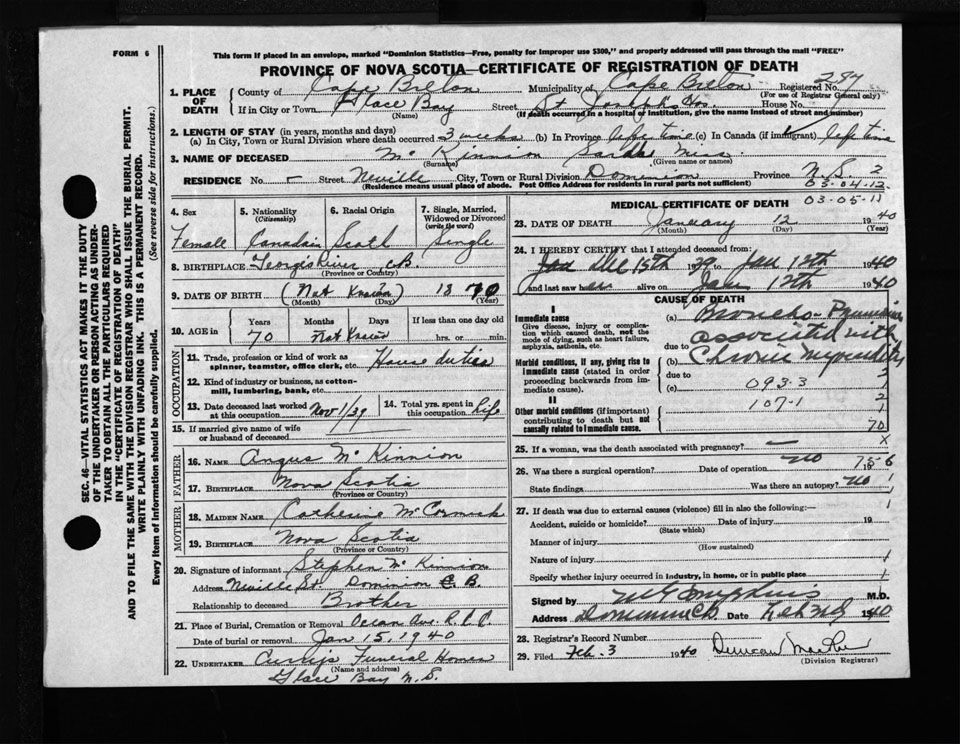 FORM 6
This form if placed in an envelope, marked "Dominion Statistics—Free, penalty for improper use $300," and properly addressed will pass through the mail "FREE"
PROVINCE OF NOVA SCOTIA—CERTIFICATE OF REGISTRATION OF DEATH
SEC. 46—VITAL STATISTICS ACT MAKES IT THE DUTY
OF THE UNDERTAKER OR PERSON ACTING AS UNDER-
TAKER TO OBTAIN ALL THE PARTICULARS REQUIRED
IN THE "CERTIFICATE OF REGISTRATION OF DEATH"
AND TO FILE THE SAME WITH THE DIVISION REGISTRAR WHO SHALL ISSUE THE BURIAL PERMIT.
WRITE PLAINLY WITH UNFADING INK. THIS IS A PERMANENT RECORD.
Every item of information should be carefully supplied. (See reverse side for instructions.)
1. PLACE OF DEATH County of Cape Breton Municipality of Cape Breton Registered No. 297
(For use of Registrar General only)
If in City or Town Glace Bay Street St Josephs Hos. House No.
(Name) (If death occurred in a hospital or institution, give the name instead of street and number)
2. LENGTH OF STAY (in years, months and days)
(a) In City, Town or Rural Division where death occurred 3 weeks (b) In Province life time (c) In Canada (if immigrant) life time
3. NAME OF DECEASED Mc Kinnion Sarah Miss
(Surname) (Given name or names)
RESIDENCE No. – Street Neville City, Town or Rural Division Dominion Province N.S. 2
(Residence means usual place of abode. Post Office Address for residents in rural parts not sufficient) 03-04-12
03-05-11
4. Sex 5. Nationality (Citizenship) 6. Racial Origin 7. Single, Married, Widowed or Divorced (write the word)
Female Canadain Scoth Single
8. BIRTHPLACE Georges River CB.
(Province or Country)
9. DATE OF BIRTH (Not Known) 1870
(Month) (Day) (Year)
10. AGE in Years Months Days If less than one day old
70 Not Known hrs. or min.
OCCUPATION
11. Trade, profession or kind of work as spinner, teamster, office clerk, etc. House duties
12. Kind of industry or business, as cotton-mill, lumbering, bank, etc.
13. Date deceased last worked at this occupation Nov 1/39 14. Total yrs. spent in this occupation Life
15. If married give name of wife or husband of deceased
FATHER
16. NAME Angus Mc Kinnion
17. BIRTHPLACE Nova Scotia
(Province or Country)
MOTHER
18. MAIDEN NAME Catherine McCormick
19. BIRTHPLACE Nova Scotia
(Province or Country)
20. Signature of informant Stephen Mc Kinnion
Address Neville St. Dominion C.B.
Relationship to deceased Brother
21. Place of Burial, Cremation or Removal Ocean Ave.
Date of burial or removal Jan 15, 1940
22. UNDERTAKER Curtis Funeral Home
(Name and address)
Glace Bay N.S.
MEDICAL CERTIFICATE OF DEATH
23. DATE OF DEATH January 12 1940
(Month) (Day) (Year)
24. I HEREBY CERTIFY that I attended deceased from:
Dec 15th 39 to Jan 12th 1940
and last saw her alive on Jan 12th 1940
CAUSE OF DEATH
I
Immediate cause (a) Broncho-Pneumonia
Give disease, injury or complication which caused death, not the mode of dying, such as heart failure, asphyxia, asthenia, etc.
due to associated with
Morbid conditions, if any, giving rise to immediate cause (stated in order proceeding backwards from immediate cause).
(b) Chronic Myocarditis
due to
(c) 093-3
II
Other morbid conditions (if important) contributing to death but not causally related to immediate cause.
107-1
2
1
70
25. If a woman, was the death associated with pregnancy? — X
26. Was there a surgical operation? no Date of operation 19
75-6
State findings Was there an autopsy? no
27. If death was due to external causes (violence) fill in also the following:—
Accident, suicide or homicide? Date of injury 19
(State which)
Manner of injury
(How sustained)
Nature of injury
Specify whether injury occurred in industry, in home, or in public place
Signed by M.D.
Address Dominion CB Date Feb 3rd 1940
28. Registrar's Record Number
29. Filed Feb. 3 1940 Duncan
(Division Registrar)